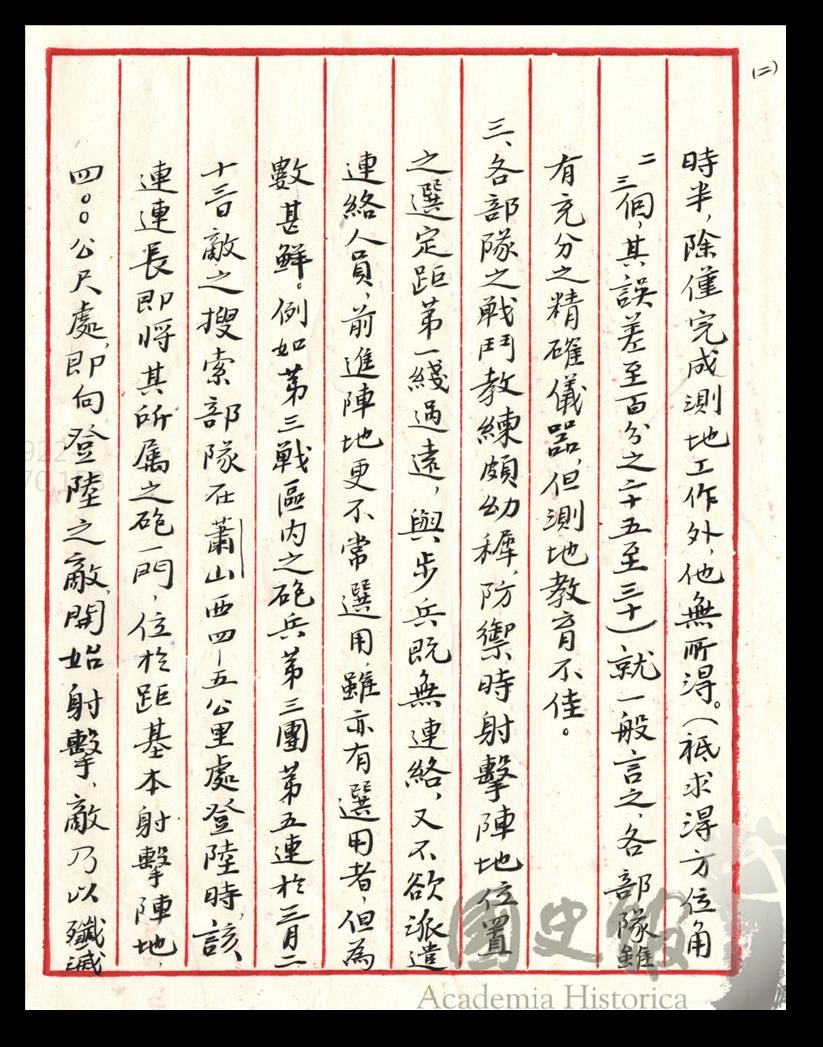 (二)
時半，除僅完成測地工作外，他無所得。（祗求得方位角
二三個，其誤差至百分之二十五至三十）就一般言之，各部隊雖
有充分之精確儀器，但測地教育不佳。
三、各部隊之戰鬥教練頗幼穉，防禦時射擊陣地位置
之選定距第一綫過遠，與步兵既無連絡，又不欲派遣
連絡人員，前進陣地更不常選用，雖亦有選用者，但為
數甚鮮。例如第三戰區内之砲兵第三團第五連於三月二
十三日敵之搜索部隊在蕭山西四－五公里處登陸時，該
連連長即將其所属之砲一門，位於距基本射擊陣地，
四〇〇公尺處，即向登陸之敵，開始射擊，敵乃以殲滅
國史館
Academia Historica